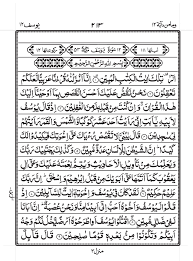 ومامن دآبة ١٢ ٢١٣ يوسف ١٢
سُوْرَةُ يُوْسُفَ مَكِّيَّةٌ
بِسْمِ اللّٰهِ الرَّحْمٰنِ الرَّحِيْمِ
الٓرٰ تِلْكَ اٰيٰتُ الْكِتٰبِ الْمُبِيْنِ اِنَّآ اَنْزَلْنٰهُ قُرْءٰنًا عَرَبِيًّا لَّعَلَّكُمْ
تَعْقِلُوْنَ نَحْنُ نَقُصُّ عَلَيْكَ اَحْسَنَ الْقَصَصِ بِمَآ اَوْحَيْنَآ اِلَيْكَ
هٰذَا الْقُرْاٰنَ وَاِنْ كُنْتَ مِنْ قَبْلِهٖ لَمِنَ الْغٰفِلِيْنَ اِذْ قَالَ يُوْسُفُ
لِاَبِيْهِ يٰٓاَبَتِ اِنِّيْ رَاَيْتُ اَحَدَ عَشَرَ كَوْكَبًا وَّالشَّمْسَ وَالْقَمَرَ
رَاَيْتُهُمْ لِيْ سٰجِدِيْنَ قَالَ يٰبُنَيَّ لَا تَقْصُصْ رُءْيَاكَ عَلٰٓى اِخْوَتِكَ
فَيَكِيْدُوْا لَكَ كَيْدًا اِنَّ الشَّيْطٰنَ لِلْاِنْسَانِ عَدُوٌّ مُّبِيْنٌ وَكَذٰلِكَ
يَجْتَبِيْكَ رَبُّكَ وَيُعَلِّمُكَ مِنْ تَاْوِيْلِ الْاَحَادِيْثِ وَيُتِمُّ نِعْمَتَهٗ عَلَيْكَ وَعَلٰٓى اٰلِ
يَعْقُوْبَ كَمَآ اَتَمَّهَا عَلٰٓى اَبَوَيْكَ مِنْ قَبْلُ اِبْرٰهِيْمَ وَاِسْحٰقَ اِنَّ رَبَّكَ
عَلِيْمٌ حَكِيْمٌ لَقَدْ كَانَ فِيْ يُوْسُفَ وَاِخْوَتِهٖٓ اٰيٰتٌ لِّلسَّآئِلِيْنَ اِذْ
قَالُوْا لَيُوْسُفُ وَاَخُوْهُ اَحَبُّ اِلٰٓى اَبِيْنَا مِنَّا وَنَحْنُ عُصْبَةٌ اِنَّ اَبَانَا
لَفِيْ ضَلٰلٍ مُّبِيْنٍ اقْتُلُوْا يُوْسُفَ اَوِ اطْرَحُوْهُ اَرْضًا يَّخْلُ لَكُمْ وَجْهُ
اَبِيْكُمْ وَتَكُوْنُوْا مِنْۢ بَعْدِهٖ قَوْمًا صٰلِحِيْنَ قَالَ قَآئِلٌ
منزل ٣